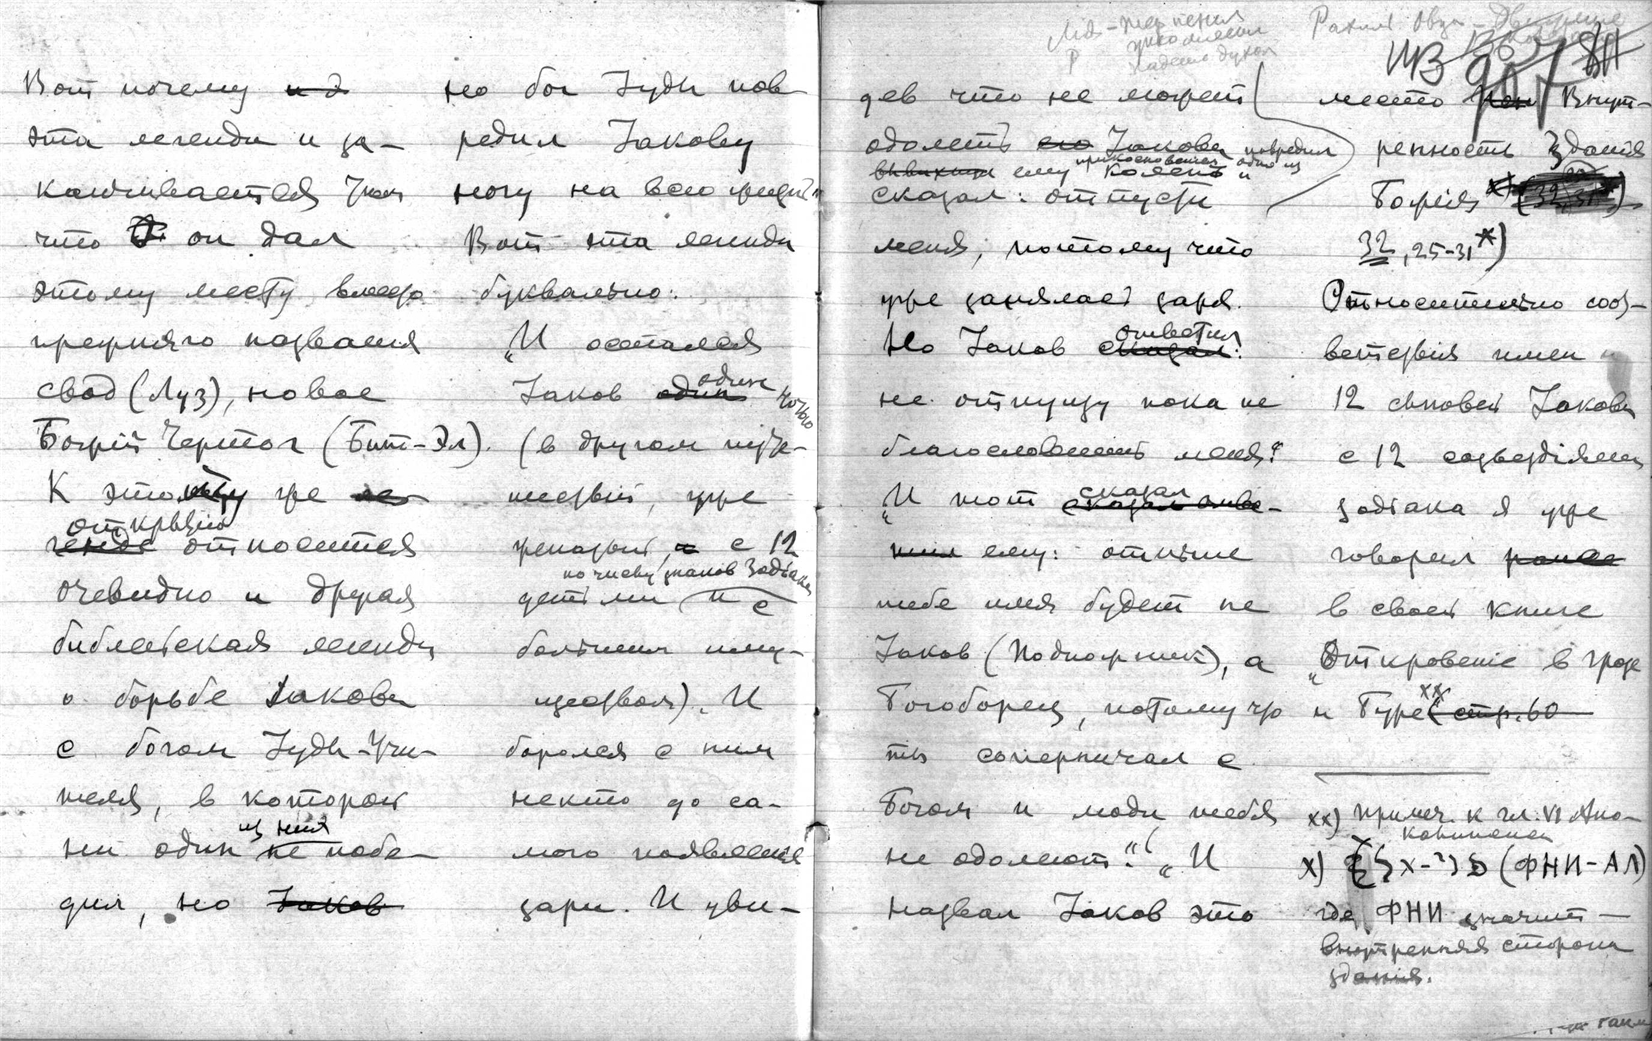 Вот почему
эта легенда и за-
канчивается тем
что он дал
этому месту, вместо
прежняго названия
свод (Луз), новое
Божій Чертог (Бит-Эл).
К этому же
откры
относится
очевидно и другая
библейская легенда
о борьбе Іакова
с богом Іуды-Учи-
теля, в которой
ни один из них не побе-
дил, но Іаков
но бог Іуды пов-
редил Іакову
ногу на всю жизнь
Вот эта легенда
буквально:
„И остался
Іаков один ночью
(в другом путе-
шествіи, уже
с 12
по числу знаков Зодіака
детьми и с
большим иму-
ществом). И
боролся с ним
некто до са-
мого появления
зари. И уви-
дев что не может
одолеть его Іакова повредил
прикосновением одно из
ему колень и
сказал: отпусти
меня, потому что
уже занялась заря.
Но Іаков сказал: ответил
не отпущу пока не
благословишь меня!
„И тот сказал
ему: отныне
тебе имя будет не
Іаков (Подножник), а
Богоборец, потому что
ты соперничал с
Богом и люди тебя
не одолеют." „И
назвал Іаков это
Рахиль Овца
место Внут-
ренность Зданія
Божія х)
32, 25-31*)
Относительно соот-
ветствія имен
12 сыновей Іакова
с 12 созвездіями
зодіака я уже
говорил ранее
в своей книге
„Откровеніе в грозе
и Буре" хх) (стр. 60
хх) Примеч. к гл. VI Апо-
калипсиса
х) (ФНИ-АЛ)
где ФНИ значит —
внутренняя сторона
зданія.